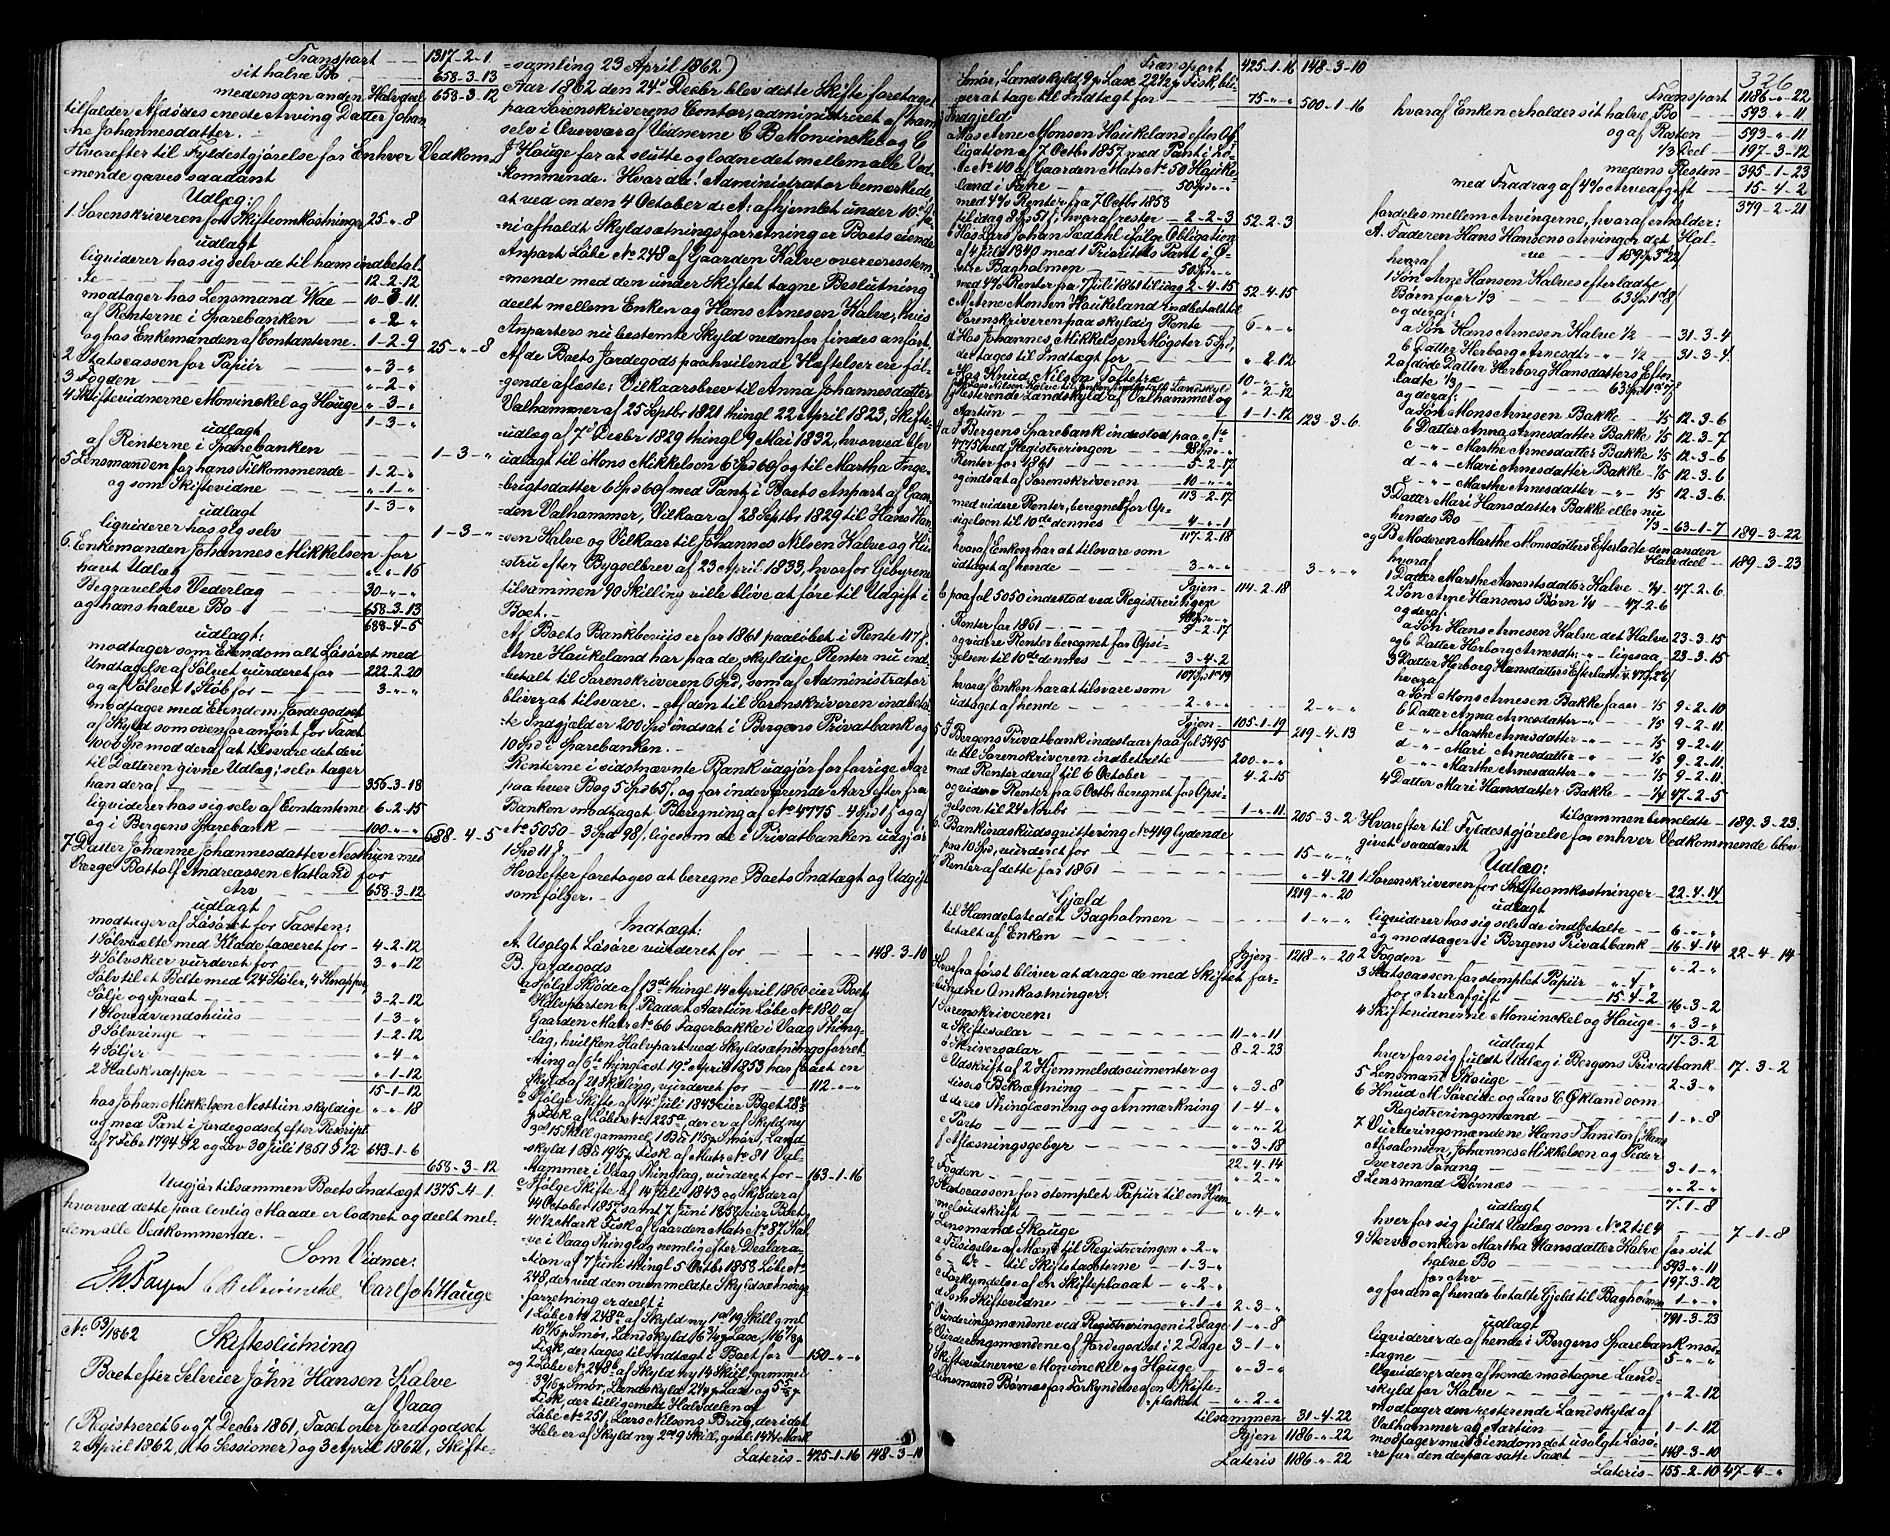 Transport — — 1317-2-1.
sit halve Bo — — 658-3-13
medens den anden Halvdeel 658-3-12
tilfalder Afdødes eneste Arving Datter Johan-
-ne Johannesdatter. —
Hvorefter til Fyldestgjørelse for Enhver Vedkom-
mende gaves saadant
Udlæg:
1. Sorenskriveren for Skifteomkostninger 25 " 8
udlagt
liqviderer hos sig selv de til ham indbetal-
-te — — — 12-2-12
modtager hos Lensmand Wae — 10-3-11.
af Renterne i Sparebanken — " 2 "
og hos Enkemanden af Contanterne. 1-2-9 25-"-8
2 Statscassen for Papiir — — "-3-"
3 Fogden — — — "-2-"
4 Skiftevidnerne Monvinckel og Hauge "-3-"
udlagt 1-3-"
af Renterne i Sparebanken 1-3-"
5 Lensmanden for hans Tilkommende 1-2-"
og som Skiftevidne — "-1-"
udlagt 1-3-"
liqviderer hos sig selv — — 1-3-"
6. Enkemanden Johannes Mikkelsen for
havt Udlæg — — "-"-16
Beggravelses Vederlag — 30-"-"
og hans halve Bo — 658-3-13
udlagt: 688-4-5
modtager som Eiendom alt Løsøret med
Undtagelse af Sølvet vurderet for — 222-2-20
og af Sølvet 1 Støb for — 3-"-"
modtager med Eiendom Jordegodset
af Skyld som ovenfor anført for Taxt
1000 Spd mod deraf at tilsvare det deri
til Datteren givne Udlæg; selv tager
han deraf — — — 356-3-18
liqviderer hos sig selv af Contanterne 6-2-15
og i Bergens Sparebank — — 100-"-" 688-4-5
7 Datter Johanne Johannesdatter Nesthun med
Værge Bottolf Andreassen Natland for
Arv 658-3-12
udlagt
modtager af Løsøret for Taxten:
1 Sølvbælte med Klæde taxeret for 4-2-12
4 Sølvskeer vurderet for — 3-"-12
Sølv til et Belte med 24 Støler, 4 Knapper,
Sølje og Spraat — — 3-2-12
1 Hovedvandshuus — — 1-3-"
8 Sølvringe — — 1-2-12
4 Søljer — — "-4-"
2 Halsknapper — — "-1-12
15-1-12
hos Johan Mikkelsen Nesttun skyldige "-"-18
og med Pant i Jordegodset efter Rescript
af 7 Febr 1794 § 2 og Lov 30 Juli 1851 § 12 643-1-6
658-3-12
Udgjør tilsammen Boets Indtægt 1375-4-1.
hvorved dette paa lovlig Maade er lodnet og deelt mel-
lem alle Vedkommende. —
Som Vidner:
C B Monvinckel Carl Joh Hauge
No 63/1862
Skifteslutning
Boet efter Selveier John Hansen Kalve
af Vaag
(Registreret 6 og 7 Decbr 1861, Taxet over Jordegodset
2 April 1862, (to Sessioner) og 3 April 1862, Skifte-
=samling 23 April 1862)
Aar 1862 den 24. Decbr blev dette Skifte foretaget
paa Sorenskriverens Contor, administreret af ham
selv i Overvær af Vidnerne C B Monvinckel og C
J Hauge for at slutte og lodne det mellem alle Ved-
kommende. Hvorda: Administrator bemærkede
at ved en den 4 October d: A: afhjemlet under 10de Ju-
ni afholdt Skyldsætningsforretning er Boets eiende
Anpart Løbe No 248 af Gaarden Kalve overeensstem-
mende med den under Skiftet tagne Beslutning
deelt mellem Enken og Hans Arnesen Kalve, hvis
Anparters nu bestemte Skyld nedenfor findes anført.
Af de Boets Jordegods paahvilende Hæftelser ere føl-
gende aflæste: Vilkaarsbrev til Anna Johannesdatter
Valhammer af 25 Septbr 1821 thingl 22 April 1823, Skifte-
udlæg af 7 Decbr 1829 thingl 9 Mai 1832, hvorved blev
udlagt til Mons Mikkelsen 6 Spd 60 f og til Martha Inge-
brigtsdatter 6 Spd 60 f med Pant i Boets Anpart af Gaar-
den Valhammer, Vilkaar af 28 Septbr 1829 til Hans Han-
sen Kalve og Vilkaar til Johannes Nilsen Kalve og Hu-
stru efter Bygselbrev af 23 April 1833, hvorfor Gebyrene
tilsammen 90 Skilling ville blive at føre til Udgift i
Boet. —
Af Boets Bankbeviis er for 1861 paaløbet i Rente 117 f.
Arne Haukeland har paa de skyldige Renter nu ind-
betalt til Sorenskriveren 6 Spd, som af Administrator
bliver at tilsvare. — Af den til Sorenskriveren indbetal-
te Indgjæld er 200 Spd indsat i Bergens Privatbank og
10 Spd i Sparebanken. —
Renterne i sidstnævnte Bank udgjør for forrige Aar
paa hver Bog 5 Spd 65 f, og for indeværende Aar efter fra
Banken modtaget Beregning af No 4775 — 4 Spd 1 f og af
No 5050 — 3 Spd 98 f, ligesom de i Privatbanken udgjør
1 Spd 11 f.
Hvorefter foretoges at beregne Boets Indtægt og Udgift
som følger. —
Indtægt:
A. Usolgt Løsøre vurderet for — 148-3-10
B. Jordegods
a Ifølge Skjøde af 13de thingl 14 April 1860 eier Boet
Halvparten af Pladset Aartun Løbe No 180 af
Gaarden Matr No 66 Fagerbakke i Vaag Thing-
lag, hvilken Halvpart ved Skyldsætningsforret-
ning af 6te thinglæst 19de April 1853 har faaet en
Skyld af 21 Skilling, vurderet for — 112-"-"
b Ifølge Skifte af 14 Juli 1843 eier Boet 28¾
# Fisk af Løbe No 225a, der er af Skyld ny
3 ort 15 Skill gammel 1 Bd 19½ # Smør, Land-
skyld 1 Bd 19½ # Fisk af Matr No 81 Val-
hammer i Vaag Thinglag, vurderet for — 163-1-16
c Ifølge Skifte af 14 Juli 1843 og Skjøder af
14 October 1857 samt 7 Juni 1858 eier Boet
40½ Mark Fisk af Gaarden Matr No 87 Kal-
ve i Vaag Thinglag nemlig efter Declara-
tion af 7 Juni thingl 5 Octbr 1858 Løbe No
248, der ved den ovenmeldte Skyldsætnings-
forretning er deelt i
1 Løbe No 248a af Skyld ny 1 ort 19 Skill gml
Fisk, der tages til Indtægt i Boet for — 150-"-"
og 2 Løbe No 248b af Skyld ny 14 Skill, gammel
Fisk, der tilligemed Halvdelen af
Løbe No 251, Lars Nilsens Brug, der i det
Hele er af Skyld ny 2 ort 9 Skill, gml: 14¼ Mark
Lateris — 425-1-16 148-3-10
Transport 425-1-16 148-3-10
Smør, Landskyld 9 # Laxe 22½ # Fisk, bli-
ver at tage til Indtægt for — — 75-"-" 500-1-16
Indgjeld:
a Hos Arne Monsen Haukeland efter Ob-
ligation af 7 Octbr 1857 med Pant i Lø-
be No 110 af Gaarden Matr No 50 Hauke-
land i Fane — — 50 Spd-"-"
med 4% Renter fra 7 Octbr 1858
til idag 8 Spd 51 f; hvoraf rester — 2-2-3 52-2-3
b Hos Lars Johan Sædahl ifølge Obligation
af 4 Juli 1840 med 1 Prioritets Pant i Ø-
stre Bagholmen — — 50 Spd-"-"
med 4% Renter fra 7 Juli 1861 til idag 2-4-15 52-4-15
c Arne Monsen Haukeland indbetalt til
Sorenskriveren paa skyldig Rente — 6-"-"
d Hos Johannes Mikkelsen Møgster 5 Spd,
der tages til Indtægt for — — "-2-12
e Hos Knud Nilsen Toftetræ 10-"-"
f Lars Nilsen Kalve til Enken indbetalt Landskyld "-2-12
g Resterende Landskyld af Valhammer og
Aartun — — — 1-1-12 123-3-6.
4 a I Bergens Sparebank indestod paa No
4775 ved Registreringen 98 Spd-"-"
Renter for 1861 — — 5-2-17
og indsat af Sorenskriveren — 10-"-"
113-2-17
med videre Renter, beregnet for Op-
sigelsen til 10de dennes — — 4-"-1
117-2-18
hvoraf Enken har at tilsvare som
udtaget af hende — — 3-"-" 3-"-"
Igjen — 114-2-18
b paa fol 5050 indestod ved Registreringen
98 Spd-"-"
Renter for 1861 — — — 5-2-17
og videre Renter beregnet for Opsi-
gelsen til 10de dennes — 3-4-2
107 Spd 1-19
hvoraf Enken har at tilsvare som
udtaget af hende — — 2-"-" 2-"-"
Igjen — 105-1-19 219-4-13
5 I Bergens Privatbank indestaar paa fol 5495
de til Sorenskriveren indbetalte — 200-"-"
med Renter deraf til 6 October — 4-2-15
og videre Renter fra 6 Octbr beregnet for Opsi-
gelsen til 24 Novbr — — 1-"-11 205-3-2
6 Bankinskudsqvittering No 419 lydende
paa 10 Spd, vurderet for — — 15-"-"
7 Renter af dette for 1861 — — "-4-21
1219-"-20
Gjæld
til Handelstedet Bagholmen
betalt af Enken — — 1-"-"
Igjen — 1218-"-20
Hvorfra først bliver at drage de med Skiftet for-
bundne Omkostninger:
1 Sorenskriveren:
a Skiftesalar — — — 11-"-11
b Skriversalar — — — 8-2-23
c Udskrift af 2 Hjemmelsdocumenter og
disses Bekræftning — — "-3-8
d deres Thinglæsning og Anmærkning 1-4-"
e Porto — — — "-"-2
f Aflæsningsgebyr — — "-3-18
22-4-14
2 Fogden — — — — "-2-"
3 Statscassen for stemplet Papiir til en Hjem-
melsudskrift — — — "-4-"
4 Lensmand Skouge
a Tilsigelse af Mænd til Registreringen "-2-"
b — dr — til Skiftetaxterne — 1-3-"
c Forkyndelse af en Skifteplacat — "-2-"
d Som Skiftevidne — — "-1-" 2-3-"
5 Vurderingsmændene ved Registreringen i 2 Dage 1-"-8
6 Vurderingsmændene af Jordegodset i 2 Dage 3-1-"
7 Skiftevidnerne Monvinckel og Hauge — "-3-"
8 Lensmand Børnes for Forkyndelse af en Skifte-
plakat — — "-2-"
tilsammen 31-4-22
Igjen — 1186-"-22
Lateris 1186-"-22
326
Transport 1186-"-22
hvoraf Enken erholder sit halve Bo — 593-"-11
og af Resten — 593-"-11
⅓ Deel — 197-3-12
medens Resten — 395-1-23
med Fradrag af 4% Arveafgift — 15-4-2
379-2-21
fordeles mellem Arvingerne, hvoraf erholder:
A. Faderen Hans Hansens Arvinger det Hal-
ve — 189 Spd 3-22
heraf
1 Søn Arne Hansen Kalves efterladte
Børn faar ⅓ — — 63 Spd 1-8
og deraf:
a Søn Hans Arnesen Kalve ½ — 31-3-4
b Datter Herborg Arnesdtr — " — ½ 31-3-4
2 afdøde Datter Herborg Hansdatters Efter-
ladte ⅓ — — 63 Spd 1-7
og deraf:
a Søn Mons Arnesen Bakke — ⅕ 12-3-6
b Datter Anna Arnesdatter Bakke ⅕ 12-3-7
c — " — Marthe Arnesdatter Bakke ⅕ 12-3-6
d — " — Mari Arnesdatter Bakke — ⅕ 12-3-6
e — " — Marthe Arnesdatter — " — ⅕ 12-3-6
3 Datter Mari Hansdatter Bakke eller nu
hendes Bo — — ⅓ — 63-1-7 189-3-22
og B Moderen Marthe Monsdatters Efterladte den anden
Halvdeel — 189-3-23
hvoraf
1 Datter Marthe Arnesdatter Kalve ¼ 47-2-6.
2 Søn Arne Hansens Børn ¼ — 47-2-6
og deraf
a Søn Hans Arnesen Kalve det Halve 23-3-15
og b Datter Herborg Arnesdtr — " — ligesaa 23-3-15
3 Datter Herborg Hansdatters Efterladte ¼ 47-2-6
hvoraf
a Søn Mons Arnesen Bakke faaer — ⅕ 9-2-10
b Datter Anna Arnesdatter — " — ⅕ 9-2-11.
c — " — Marthe Arnesdatter — " — ⅕ 9-2-11.
d — " — Mari Arnesdatter — " — ⅕ 9-2-11.
e — " — Marthe Arnesdatter — " — ⅕ 9-2-11.
4 Datter Mari Hansdatter Bakke — ¼ 47-2-5
tilsammen bemeldte — 189-3-23.
Hvorefter til Fyldestgjørelse for enhver Vedkommende blev
givet saadant
Udlæg:
1. Sorenskriveren for Skifteomkostninger — 22-4-14
udlagt
liqviderer hos sig selv de indbetalte — 6-"-"
og modtager i Bergens Privatbank — 16-4-14 22-4-14
2 Fogden — — — "-2-"
3 Statscassen for stemplet Papiir "-4-"
for Arveafgift — — 15-4-2 16-3-2
4 Skiftevidnerne Monvinckel og Hauge — "-3-"
udlagt 17-3-2
hver for sig fuldt Udlæg i Bergens Privatbank 17-3-2
5 Lensmand Skouge — — 2-3-"
6 Knud M. Søreide og Lars C. Økland som
Registreringsmænd — — 1-"-8
7 Vurderingsmændene Hans
Absalonsen, Johannes Mikkelsen og Peder
Iversen Torang — — 3-1-"
8 Lensmand Børnæs — — "-2-"
udlagt 7-1-8
hver for sig fuldt Udlæg som No 2 til 4 7-1-8
9 Stervboenken Martha Hansdatter Kalve for sit
halve Bo 593-"-11
for Arv 197-3-12
og for den af hende betalte Gjæld til Bagholmen 1-"-"
udlagt 791-3-23
liqviderer de af hende i Bergens Sparebank mod-
tagne — — — — 5-"-"
liqviderer den af hende modtagne Land-
skyld for Kalve — — "-2-12
modtager den resterende Landskyld af
Valhammer og Aartun — 1-1-12
modtager med Eiendom det usolgte Løsø-
re for den derpaa satte Taxt — 148-3-10
Lateris — 155-2-10 47-4-"